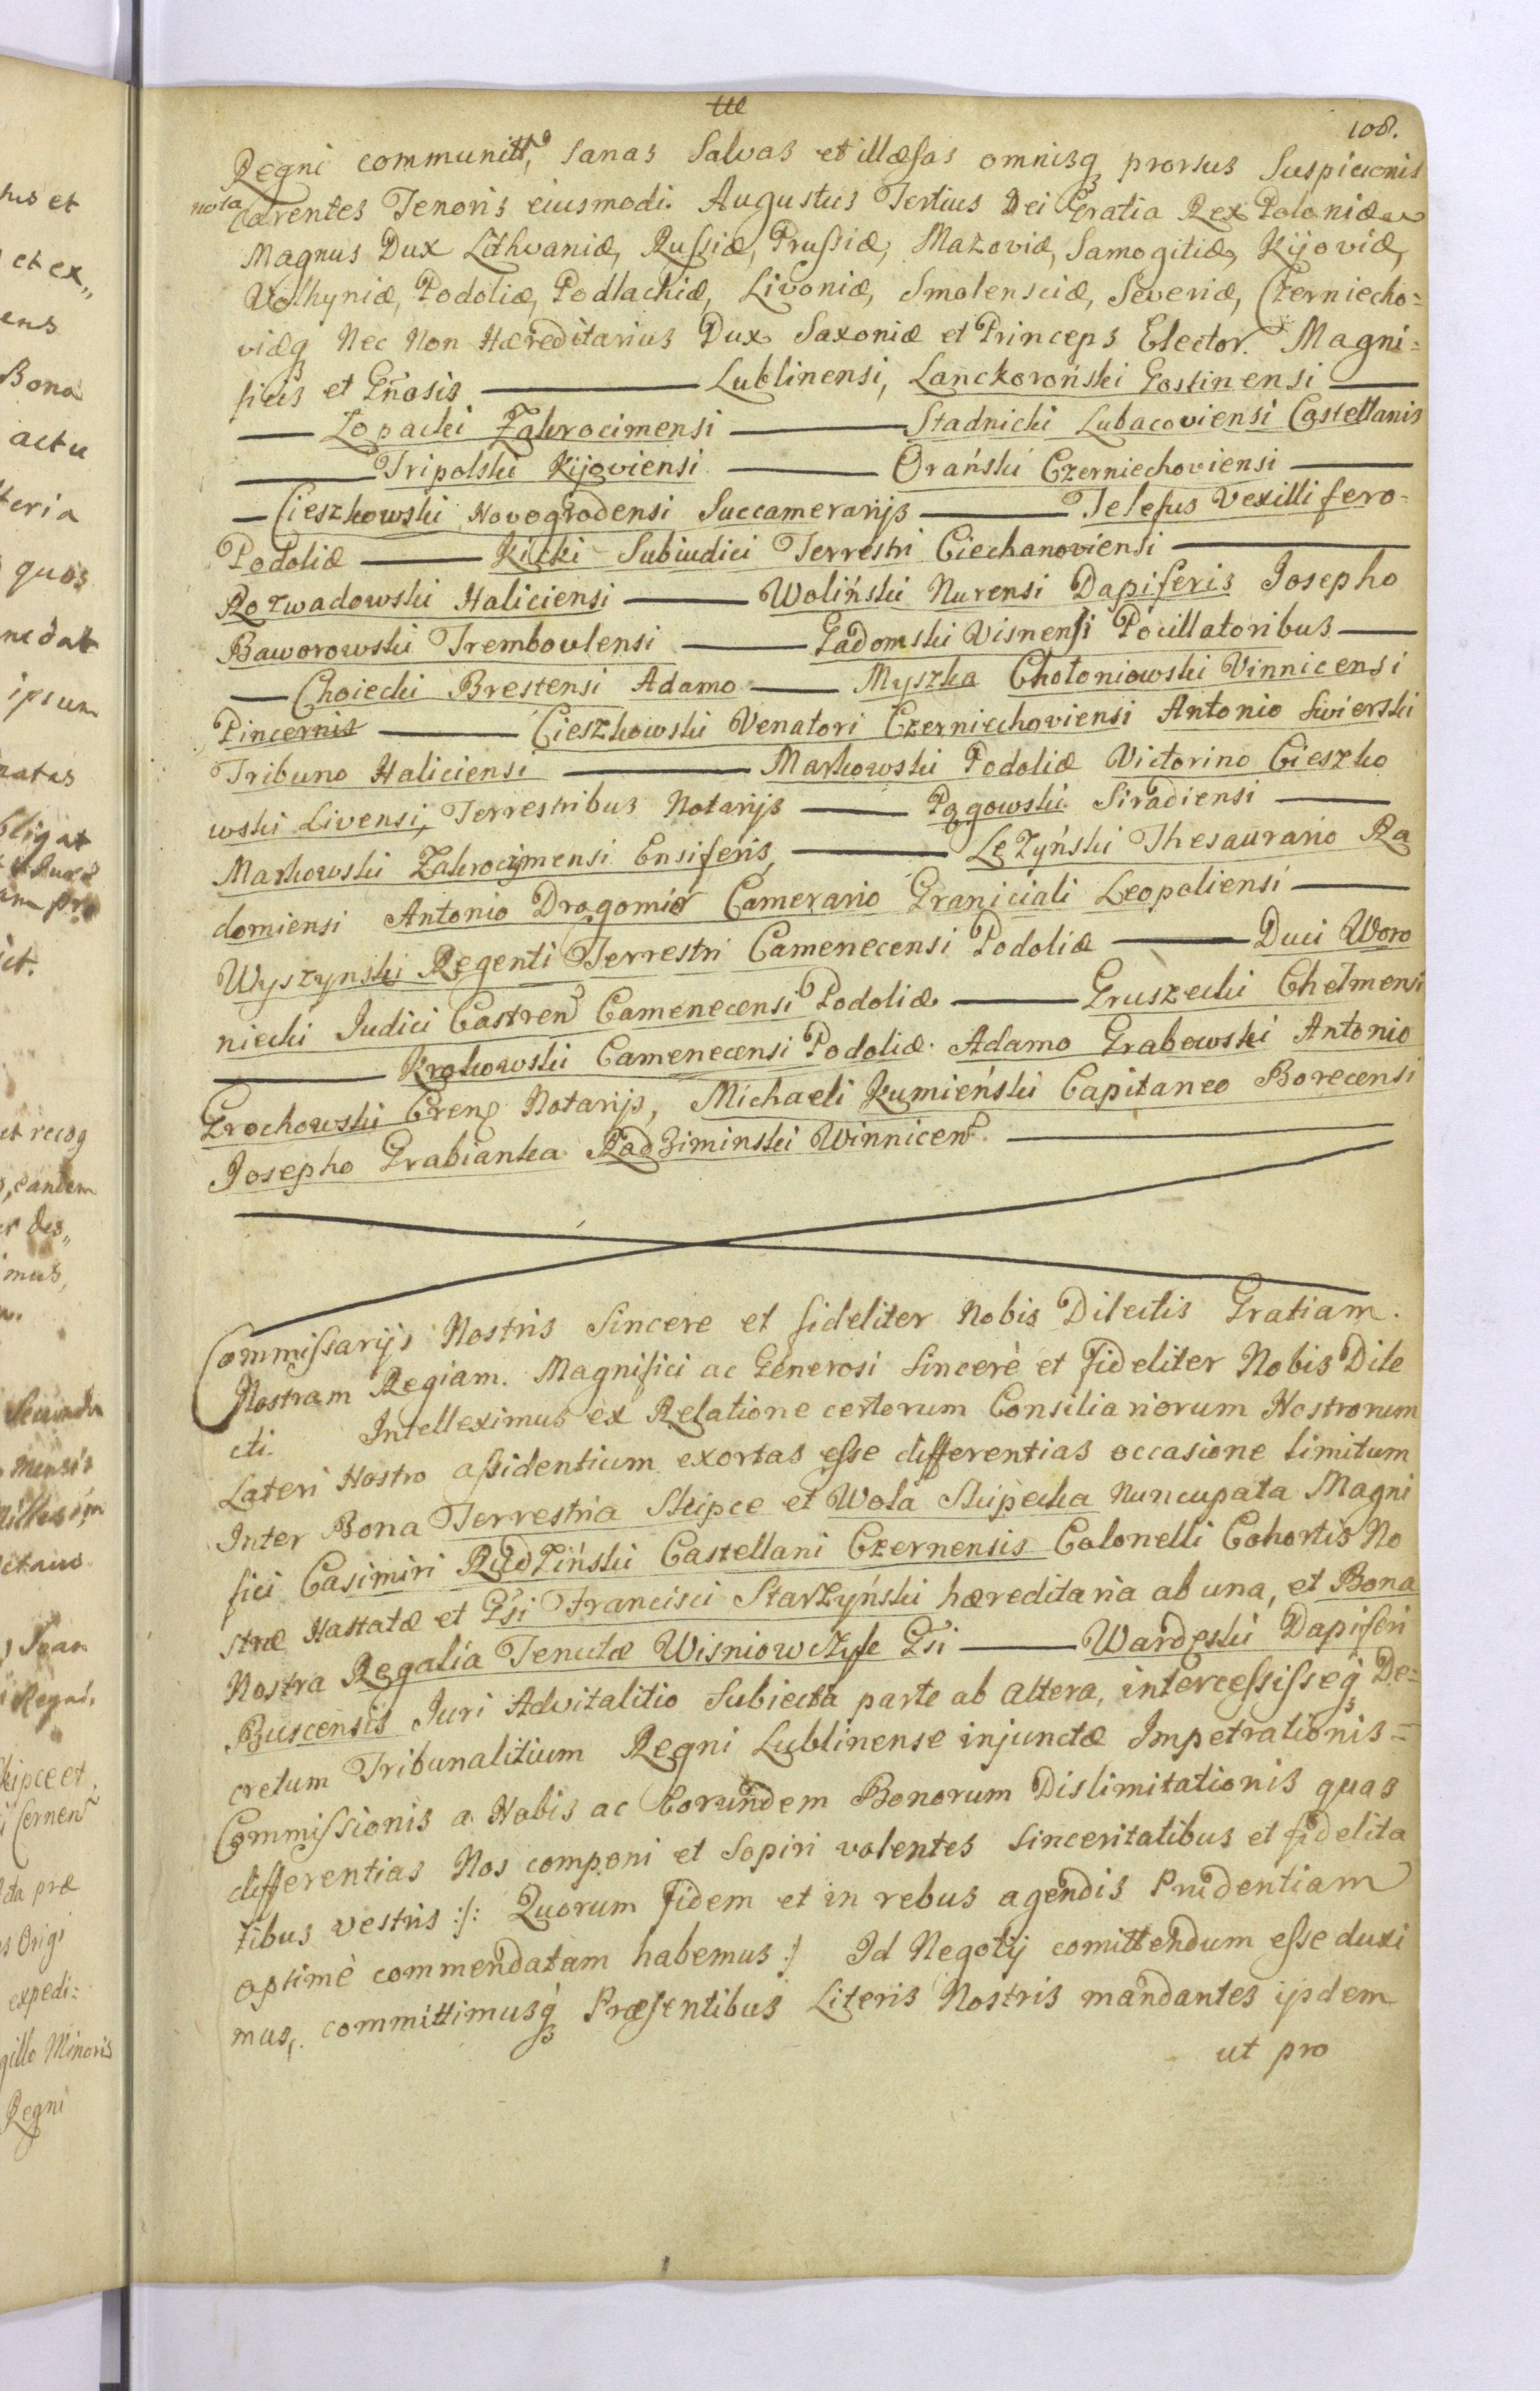 108.
Regni communitt, sanas Salvas et illæsas omnisq prorsus Suspicionis
nota carentes Tenoris eiusmodi. Augustus Tertius Dei Gratia Rex Poloniæ
Magnus Dux Lithvaniæ, Russiæ, Prussiæ, Mazoviæ, Samogitiæ, Kijoviæ,
Volhyniæ, Podoliæ, Podlachiæ, Livoniæ, Smolensciæ, Severiæ, Czerniecho=
viæq Nec Non Hæreditarius Dux Saxoniæ et Princeps Elector. Magni=
ficis et Gnosis ——— Lublinensi, Lanckoroński Gostinensi ———
——— Łopacki Zakrocimensi ——— Stadnicki Lubacoviensi Castellanis
——— Tripolski Kijoviensi ——— Orański Czerniechoviensi ———
— Cieszkowski Novogrodensi Succamerarijs ——— Telefus Vexillifero
Podoliæ ——— Kicki Subiudici Terrestri Ciechanoviensi ———
Rozwadowski Haliciensi ——— Woliński Nurensi Dapiferis Josepho
Baworowski Trembovlensi ——— Gadomski Visnensi Pocillatoribus ——
—— Choiecki Brestensi Adamo —— Myszka Chołoniowski Vinnicensi
Pincernis ——— Cieszkowski Venatori Czerniechoviensi Antonio Swierski
Tribuno Haliciensi ——— Markowski Podoliæ Victorino Cieszko
wski Livensi, Terrestribus Notarijs ——— Pągowski Siradiensi ———
Markowski Zakrocimensi Ensiferis, ——— Lężyński Thesaurario Ra
domiensi Antonio Dragomir Camerario Graniciali Leopoliensi ———
Wyszynski Regenti Terrestri Camenecensi Podoliæ ——— Duci Woro
niecki Judici Castren Camenecensi Podoliæ ——— Gruszecki Chełmensi
——— Krakowski Camenecensi Podoliæ Adamo Grabowski Antonio
Grochowski Cren Notarijs, Michaeli Kumieński Capitaneo Borecensi
Josepho Grabianka Radziminski Winnicen. ———
Commissarijs Nostris Sincere et fideliter Nobis Dilectis Gratiam.
Nostram Regiam. Magnifici ac Generosi Sincerè et Fideliter Nobis Dile
cti. Intelleximus ex Relatione certorum Consiliariorum Nostrorum
Lateri Nostro assidentium exortas esse differentias occasione limitum
Inter Bona Terrestria Skipce et Wola Skipecka Nuncupata Magni
fici Casimiri Rudziński Castellani Czernensis Colonelli Cohortis No
stræ Hastatæ et Gsi Francisci Starzyński hæreditaria ab una, et Bona
Nostra Regalia Tenutæ Wisniowczyk Gsi ——— Wardęski Dapiferi
Buscensis Juri Advitalitio Subiecta parte ab altera, intercessisseq De=
cretum Tribunalitium Regni Lublinense injunctæ Impetrationis=
Commissionis a Nobis ac Eorundem Bonorum Dislimitationis quas
differentias Nos componi et Sopiri volentes Sinceritatibus et fidelita
tibus vestris :/: Quorum Fidem et in rebus agendis Prudentiam
optimè commendatam habemus :/ Id Negotij comittendum esse duxi
mus, committimusq Præsentibus Literis Nostris mandantes ijsdem
ut pro